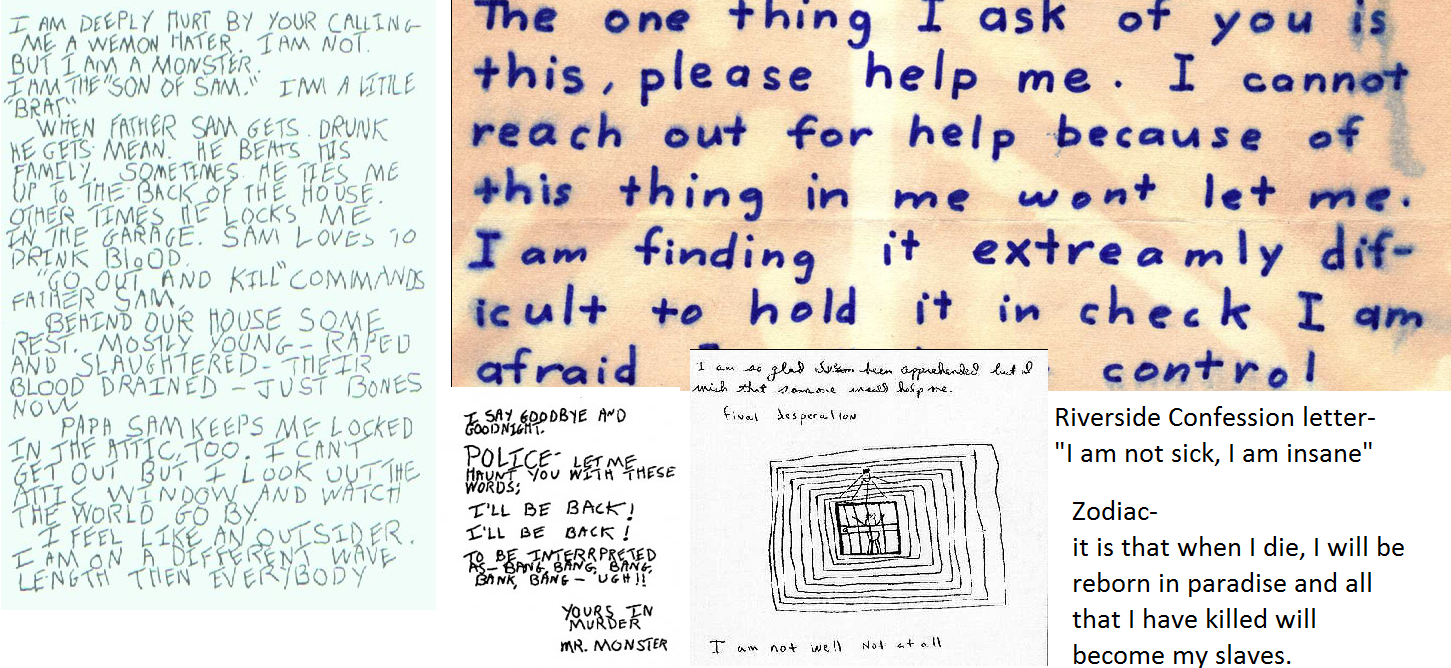 I AM DEEPLY HURT BY YOUR CALLING
ME A WEMON HATER. I AM NOT.
BUT I AM A MONSTER.
I AM THE "SON OF SAM." I AM A LITTLE
"BRAT".
WHEN FATHER SAM GETS DRUNK
HE GETS MEAN. HE BEATS HIS
FAMILY. SOMETIMES HE TIES ME
UP TO THE BACK OF THE HOUSE.
OTHER TIMES HE LOCKS ME
IN THE GARAGE. SAM LOVES TO
DRINK BLOOD.
"GO OUT AND KILL" COMMANDS
FATHER SAM.
BEHIND OUR HOUSE SOME
REST. MOSTLY YOUNG - RAPED
AND SLAUGHTERED - THEIR
BLOOD DRAINED - JUST BONES
NOW
PAPA SAM KEEPS ME LOCKED
IN THE ATTIC, TOO. I CAN'T
GET OUT BUT I LOOK OUT THE
ATTIC WINDOW AND WATCH
THE WORLD GO BY.
I FEEL LIKE AN OUTSIDER.
I AM ON A DIFFERENT WAVE
LENGTH THEN EVERYBODY
The one thing I ask of you is
this, please help me. I cannot
reach out for help because of
this thing in me wont let me.
I am finding it extreamly dif-
icult to hold it in check I am
afraid control
I SAY GOODBYE AND
GOODNIGHT.
POLICE- LET ME
HAUNT YOU WITH THESE
WORDS;
I'LL BE BACK!
I'LL BE BACK!
TO BE INTERRPRETED
AS- BANG, BANG, BANG,
BANK, BANG - UGH!!
YOURS IN
MURDER
MR. MONSTER
I am so glad been apprehended but I
wish that someone would help me.
final desperation
I am not well Not at all
Riverside Confession letter-
"I am not sick, I am insane"
Zodiac-
it is that when I die, I will be
reborn in paradise and all
that I have killed will
become my slaves.